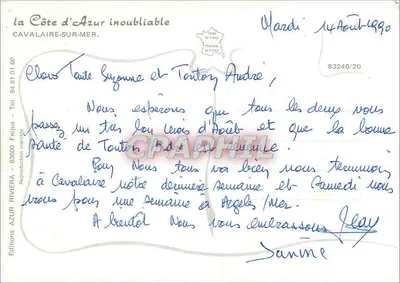 la Côte d'Azur inoubliable
CAVALAIRE-SUR-MER.
Mardi 14 Août 1990
83240/20
Chers Tante Suzanne et Tonton André,
Nous espérons que tous les deux vous
passez un très bon mois d'Août et que la bonne
santé de Tonton André se
Pour Nous tous va bien nous terminons
à Cavalaire notre dernière semaine et Samedi nous
vous pour une semaine à Argelès/Mer.
A bientôt Nous vous embrassons Jean
Janine
Editions AZUR RIVIERA - 83600 Fréjus - Tél. 94 81 01 60